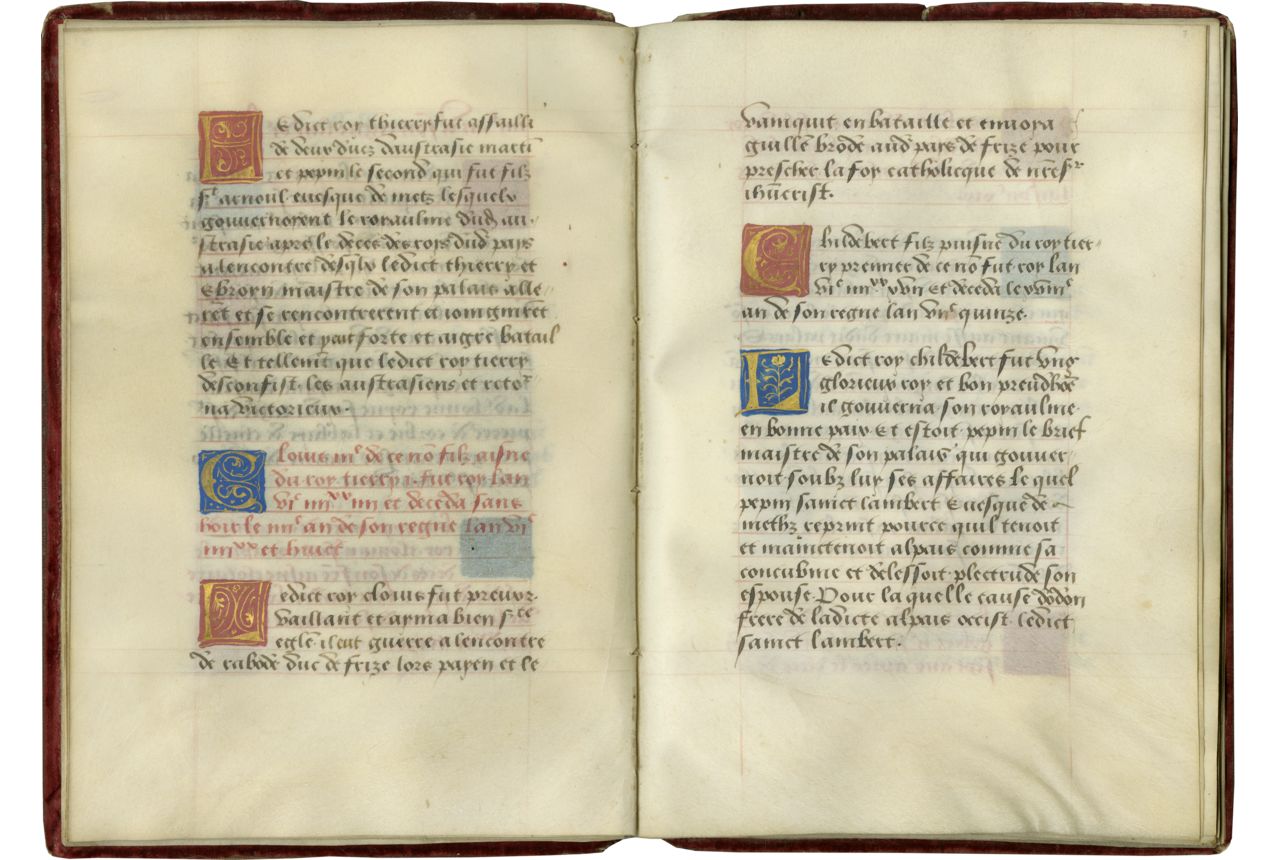 Ledict roy thierry fut assailli
de deux ducz daustrasie marti
et pepin le second qui fut filz
st arnoul euesque de metz lesquelx
gouuernoyent le royaulme dud au
strasie apres le deces des roys dud pays
a lencontre desqlx ledict thierry et
Ebroyn maistre de son palais alle
rēt et se rencontrerent et ioingnirēt
ensemble et y eut forte et aigre batail
le Et tellemēt que ledict roy tierry
desconfist les austrasiens et retor
na victorieux.
Clouis iiiᵉ de ce nō filz aisne
du roy tierry i. fut roy lan
viᶜ iiiiˣˣ iiii et deceda sans
hoir le iiiiᵉ an de son regne lan viᶜ
iiiiˣˣ et huict
Ledict roy clouis fut preux
vaillant et ayma bien sᶜᵗᵉ
eglē il eut guerre a lencontre
de rabode duc de frize lors payen et le
vainquit en bataille et enuoya
guillē brode aud pays de frize pour
prescher la foy catholicque de nrē sʳ
ihūcrist.
Childebert filz puisne du roy tier
ry premier de ce nō fut roy lan
viᶜ iiiiˣˣ xvii et deceda le xviiiᵉ
an de son regne lan viiᶜ quinze.
Ledict roy childebert fut vng
glorieux roy et bon preudhōe
il gouuerna son royaulme
en bonne paix Et estoit pepin le brief
maistre de son palais qui gouuer
noit soubz luy ses affaires le quel
pepin sainct lambert Euesque de
methz reprint pource quil tenoit
et mainctenoit alpais comme sa
concubine et delessoit plectrude son
espouse Pour la quelle cause dodon
frere de ladicte alpais occist ledict
sainct lambert.